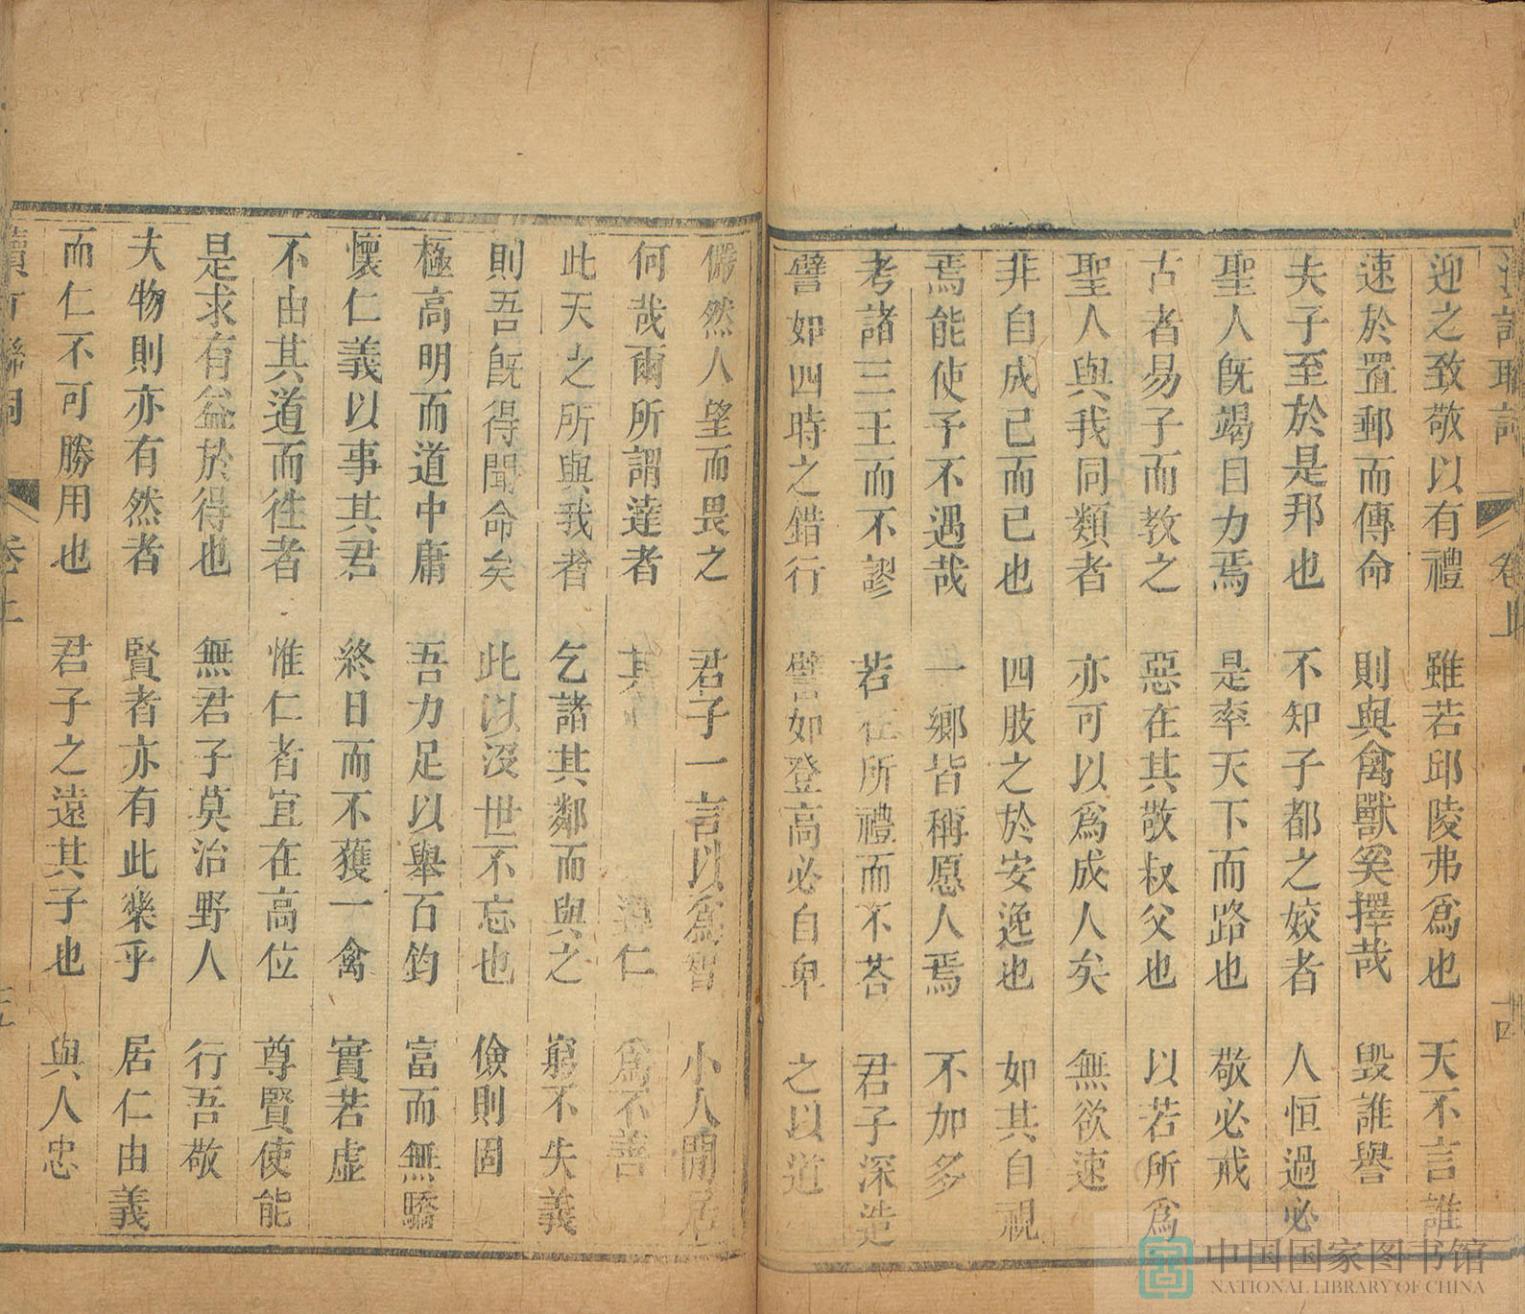 迎之致敬以有禮 雖若邱陵弗爲也 天不言誰
速於置郵而傳命 則與禽獸奚擇哉 毀誰譽
夫子至於是邦也 不知子都之姣者 人恒過必
聖人既竭目力焉 是率天下而路也 敬必戒
古者易子而教之 惡在其敬叔父也 以若所爲
聖人與我同類者 亦可以爲成人矣 無欲速
非自成己而已也 四肢之於安逸也 如其自視
焉能使予不遇哉 一鄉皆稱愿人焉 不加多
考諸三王而不謬 若在所禮而不荅 君子深造
譬如四時之錯行 譬如登高必自卑 之以道
儼然人望而畏之 君子一言以爲智 小人閒居
何哉爾所謂達者 其 仁 爲不善
此天之所與我者 乞諸其鄰而與之 窮不失義
則吾既得聞命矣 此以沒世不忘也 儉則固
極高明而道中庸 吾力足以舉百鈞 富而無驕
懷仁義以事其君 終日而不獲一禽 實若虛
不由其道而徃者 惟仁者宜在高位 尊賢使能
是求有益於得也 無君子莫治野人 行吾敬
夫物則亦有然者 賢者亦有此樂乎 居仁由義
而仁不可勝用也 君子之遠其子也 與人忠
卷上
中国国家图书馆
NATIONAL LIBRARY OF CHINA